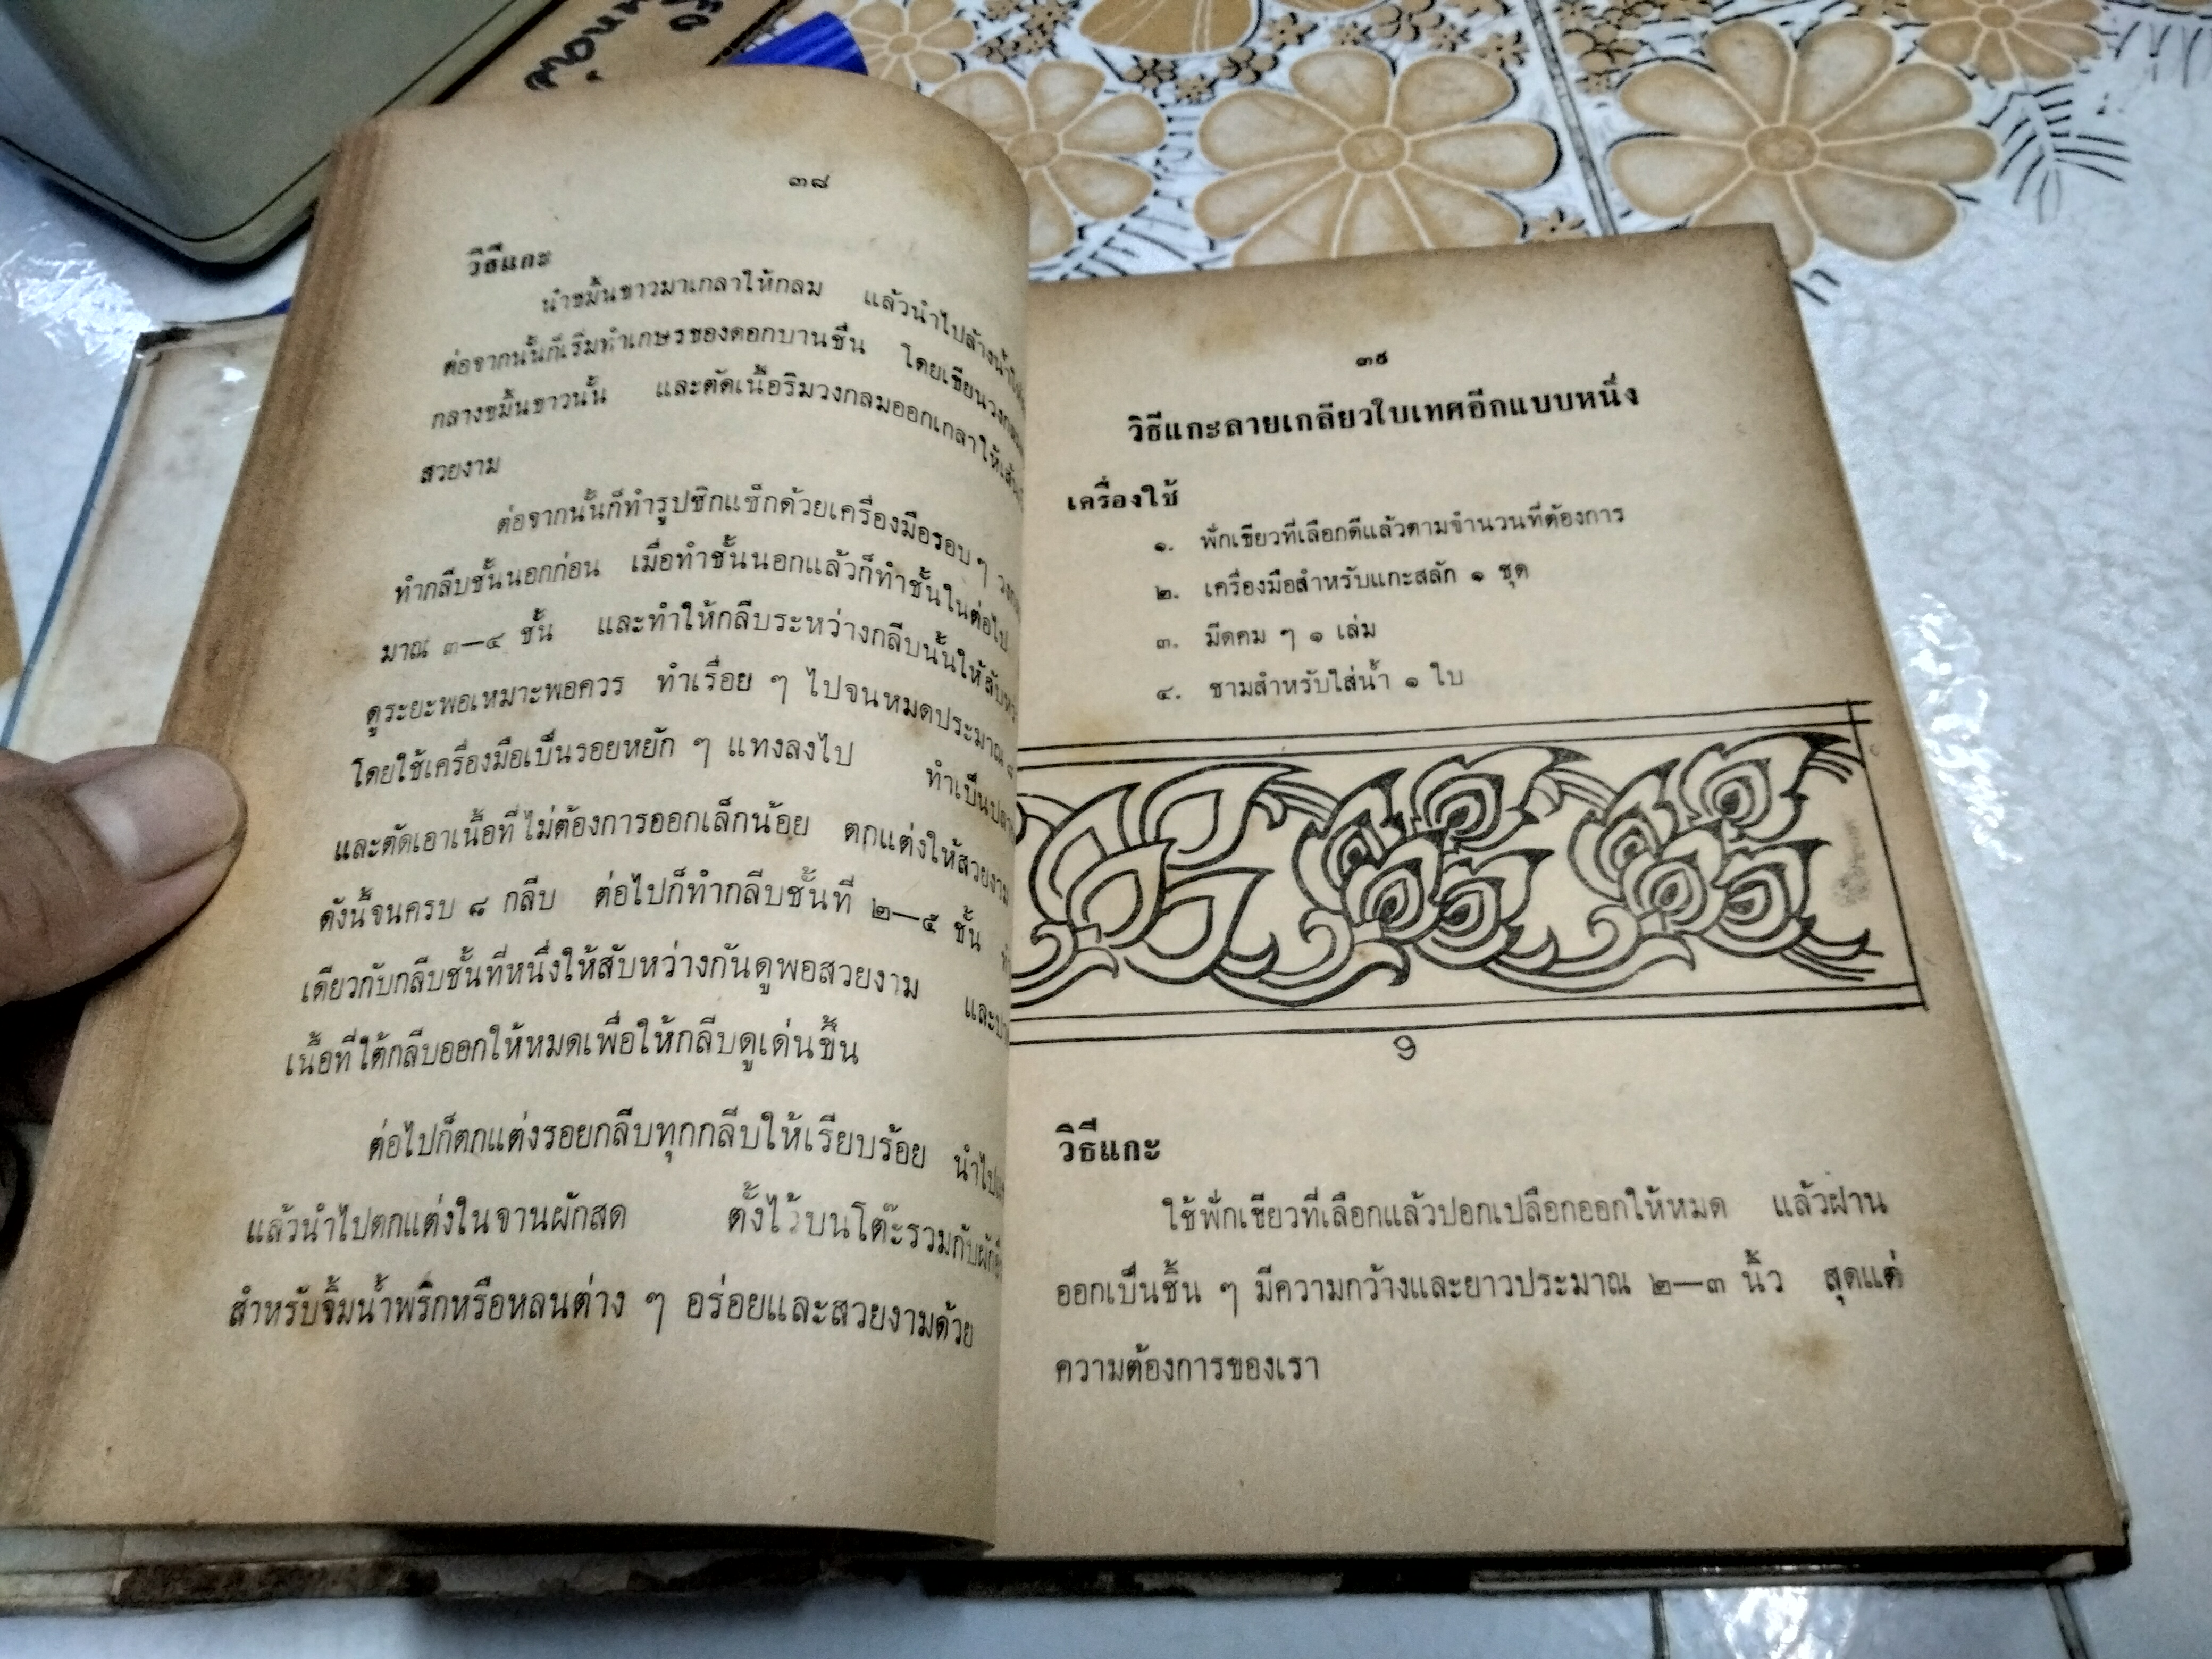 ๓๘
วิธีแกะ
นำขมิ้นขาวมาเกลาให้กลม แล้วนำไปล้างน้ำ
ต่อจากนั้นก็เริ่มทำเกษรของดอกบานชื่น โดยเขียน
กลางขมิ้นขาวนั้น และตัดเนื้อริมวงกลมออกเกลาให้
สวยงาม
ต่อจากนั้นก็ทำรูปซิกแซ็กด้วยเครื่องมือรอบ ๆ
ทำกลีบชั้นนอกก่อน เมื่อทำชั้นนอกแล้วก็ทำชั้นในต่อไป
มาณ ๓—๔ ชั้น และทำให้กลีบระหว่างกลีบนั้นให้
ดูระยะพอเหมาะพอควร ทำเรื่อย ๆ ไปจนหมดประมาณ
โดยใช้เครื่องมือเป็นรอยหยัก ๆ แทงลงไป ทำเป็น
และตัดเอาเนื้อที่ไม่ต้องการออกเล็กน้อย ตกแต่งให้สวยงาม
ดังนี้จนครบ ๘ กลีบ ต่อไปก็ทำกลีบชั้นที่ ๒—๕ ชั้น
เดียวกับกลีบชั้นที่หนึ่งให้สับหว่างกันดูพอสวยงาม
เนื้อที่ใต้กลีบออกให้หมดเพื่อให้กลีบดูเด่นขึ้น
ต่อไปก็ตกแต่งรอยกลีบทุกกลีบให้เรียบร้อย
แล้วนำไปตกแต่งในจานผักสด ตั้งไว้บนโต๊ะรวมกับ
สำหรับจิ้มน้ำพริกหรือหลนต่าง ๆ อร่อยและสวยงามด้วย
๓๙
วิธีแกะลายเกลียวใบเทศอีกแบบหนึ่ง
เครื่องใช้
๑. ฟักเขียวที่เลือกดีแล้วตามจำนวนที่ต้องการ
๒. เครื่องมือสำหรับแกะสลัก ๑ ชุด
๓. มีดคม ๆ ๑ เล่ม
๔. ชามสำหรับใส่น้ำ ๑ ใบ
วิธีแกะ
ใช้ฟักเขียวที่เลือกแล้วปอกเปลือกออกให้หมด แล้วฝาน
ออกเป็นชิ้น ๆ มีความกว้างและยาวประมาณ ๒—๓ นิ้ว สุดแต่
ความต้องการของเรา